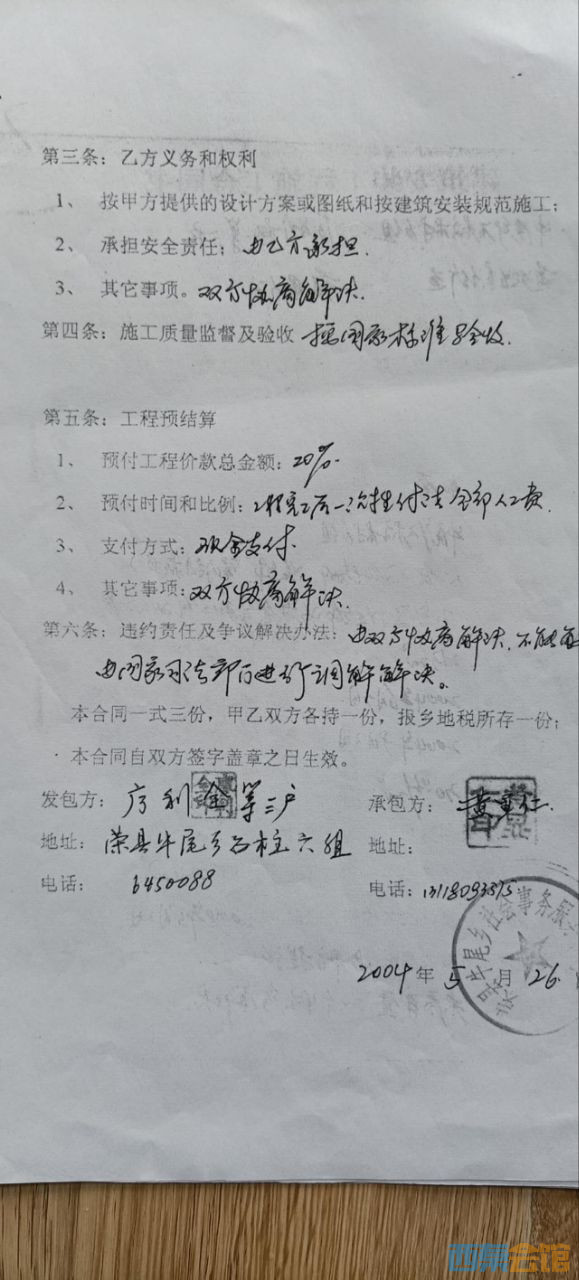 第三条：乙方义务和权利
1、 按甲方提供的设计方案或图纸和按建筑安装规范施工；
2、 承担安全责任；由乙方承担
3、 其它事项。双方协商解决.
第四条：施工质量监督及验收 按国家标准验收.
第五条：工程预结算
1、 预付工程价款总金额：20%.
2、 预付时间和比例：工程完工后一次性付清全部人工费.
3、 支付方式：现金支付.
4、 其它事项：双方协商解决.
第六条：违约责任及争议解决办法：由双方协商解决.不能
由国家司法部门进行调解解决。
本合同一式三份，甲乙双方各持一份，报乡地税所存一份；
本合同自双方签字盖章之日生效。
发包方： 利金等三户 承包方： 黄
地址： 荣县牛尾乡石柱六组 地址：
电话： 6450088 电话：
牛尾乡社会事务服
2004年5月26
西祠会馆